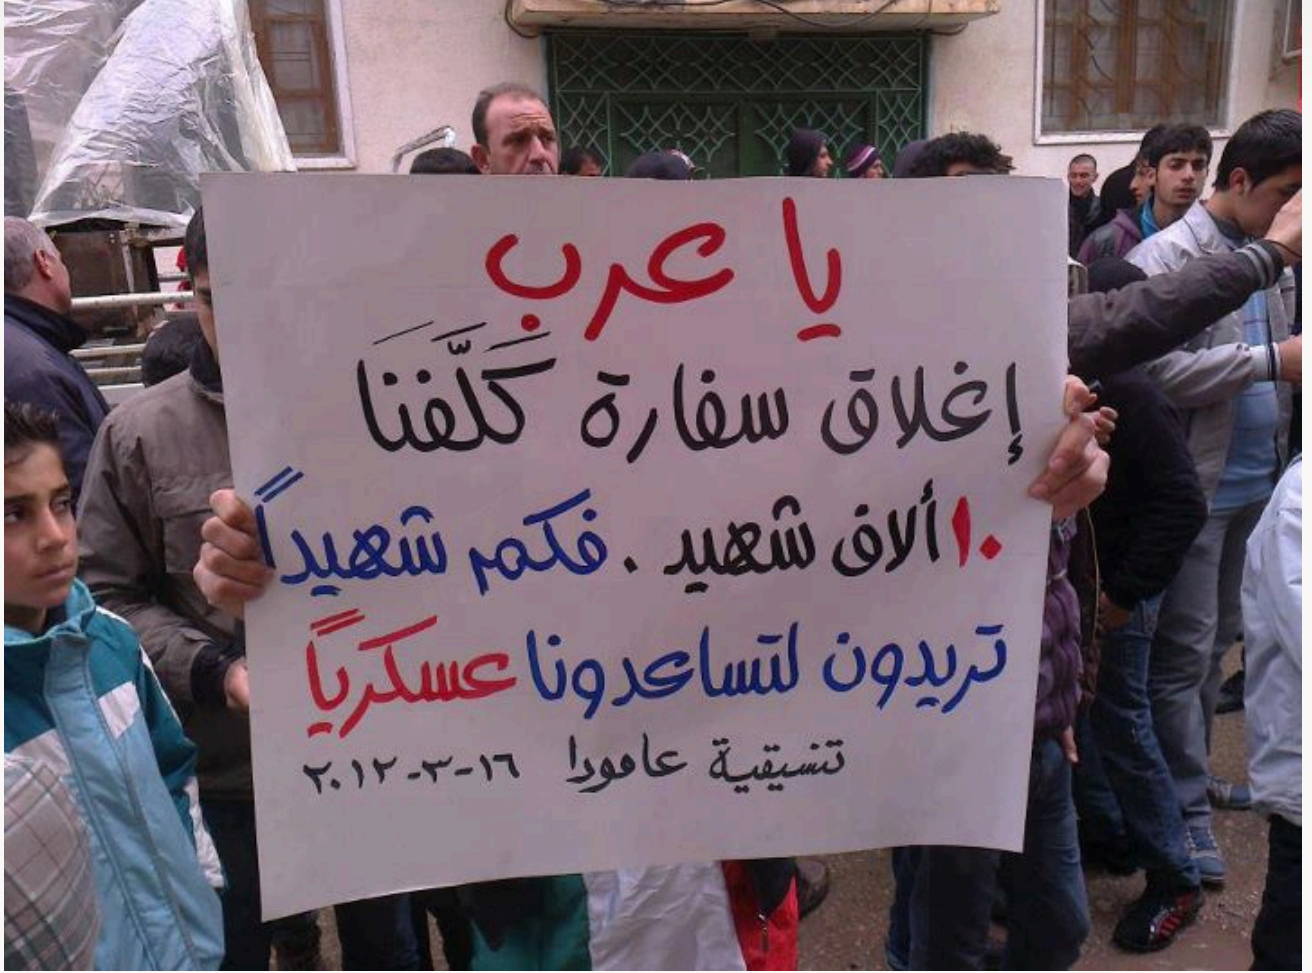 يا عرب
إغلاق سفارة كَلَّفنَا
١٠ ألاف شهيد . فكم شهيداً
تريدون لتساعدونا عسكرياً
تنسيقية عامودا ١٦-٣-٢٠١٢